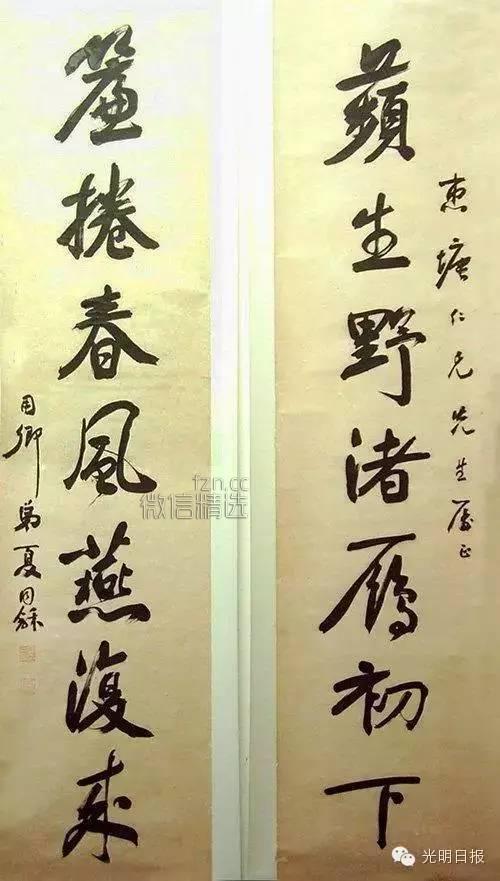 惠塘仁兄先生属正
蘋生野渚雁初下
簾捲春風燕復來
用卿弟夏同龢
fzn.cc
微信精选
光明日报